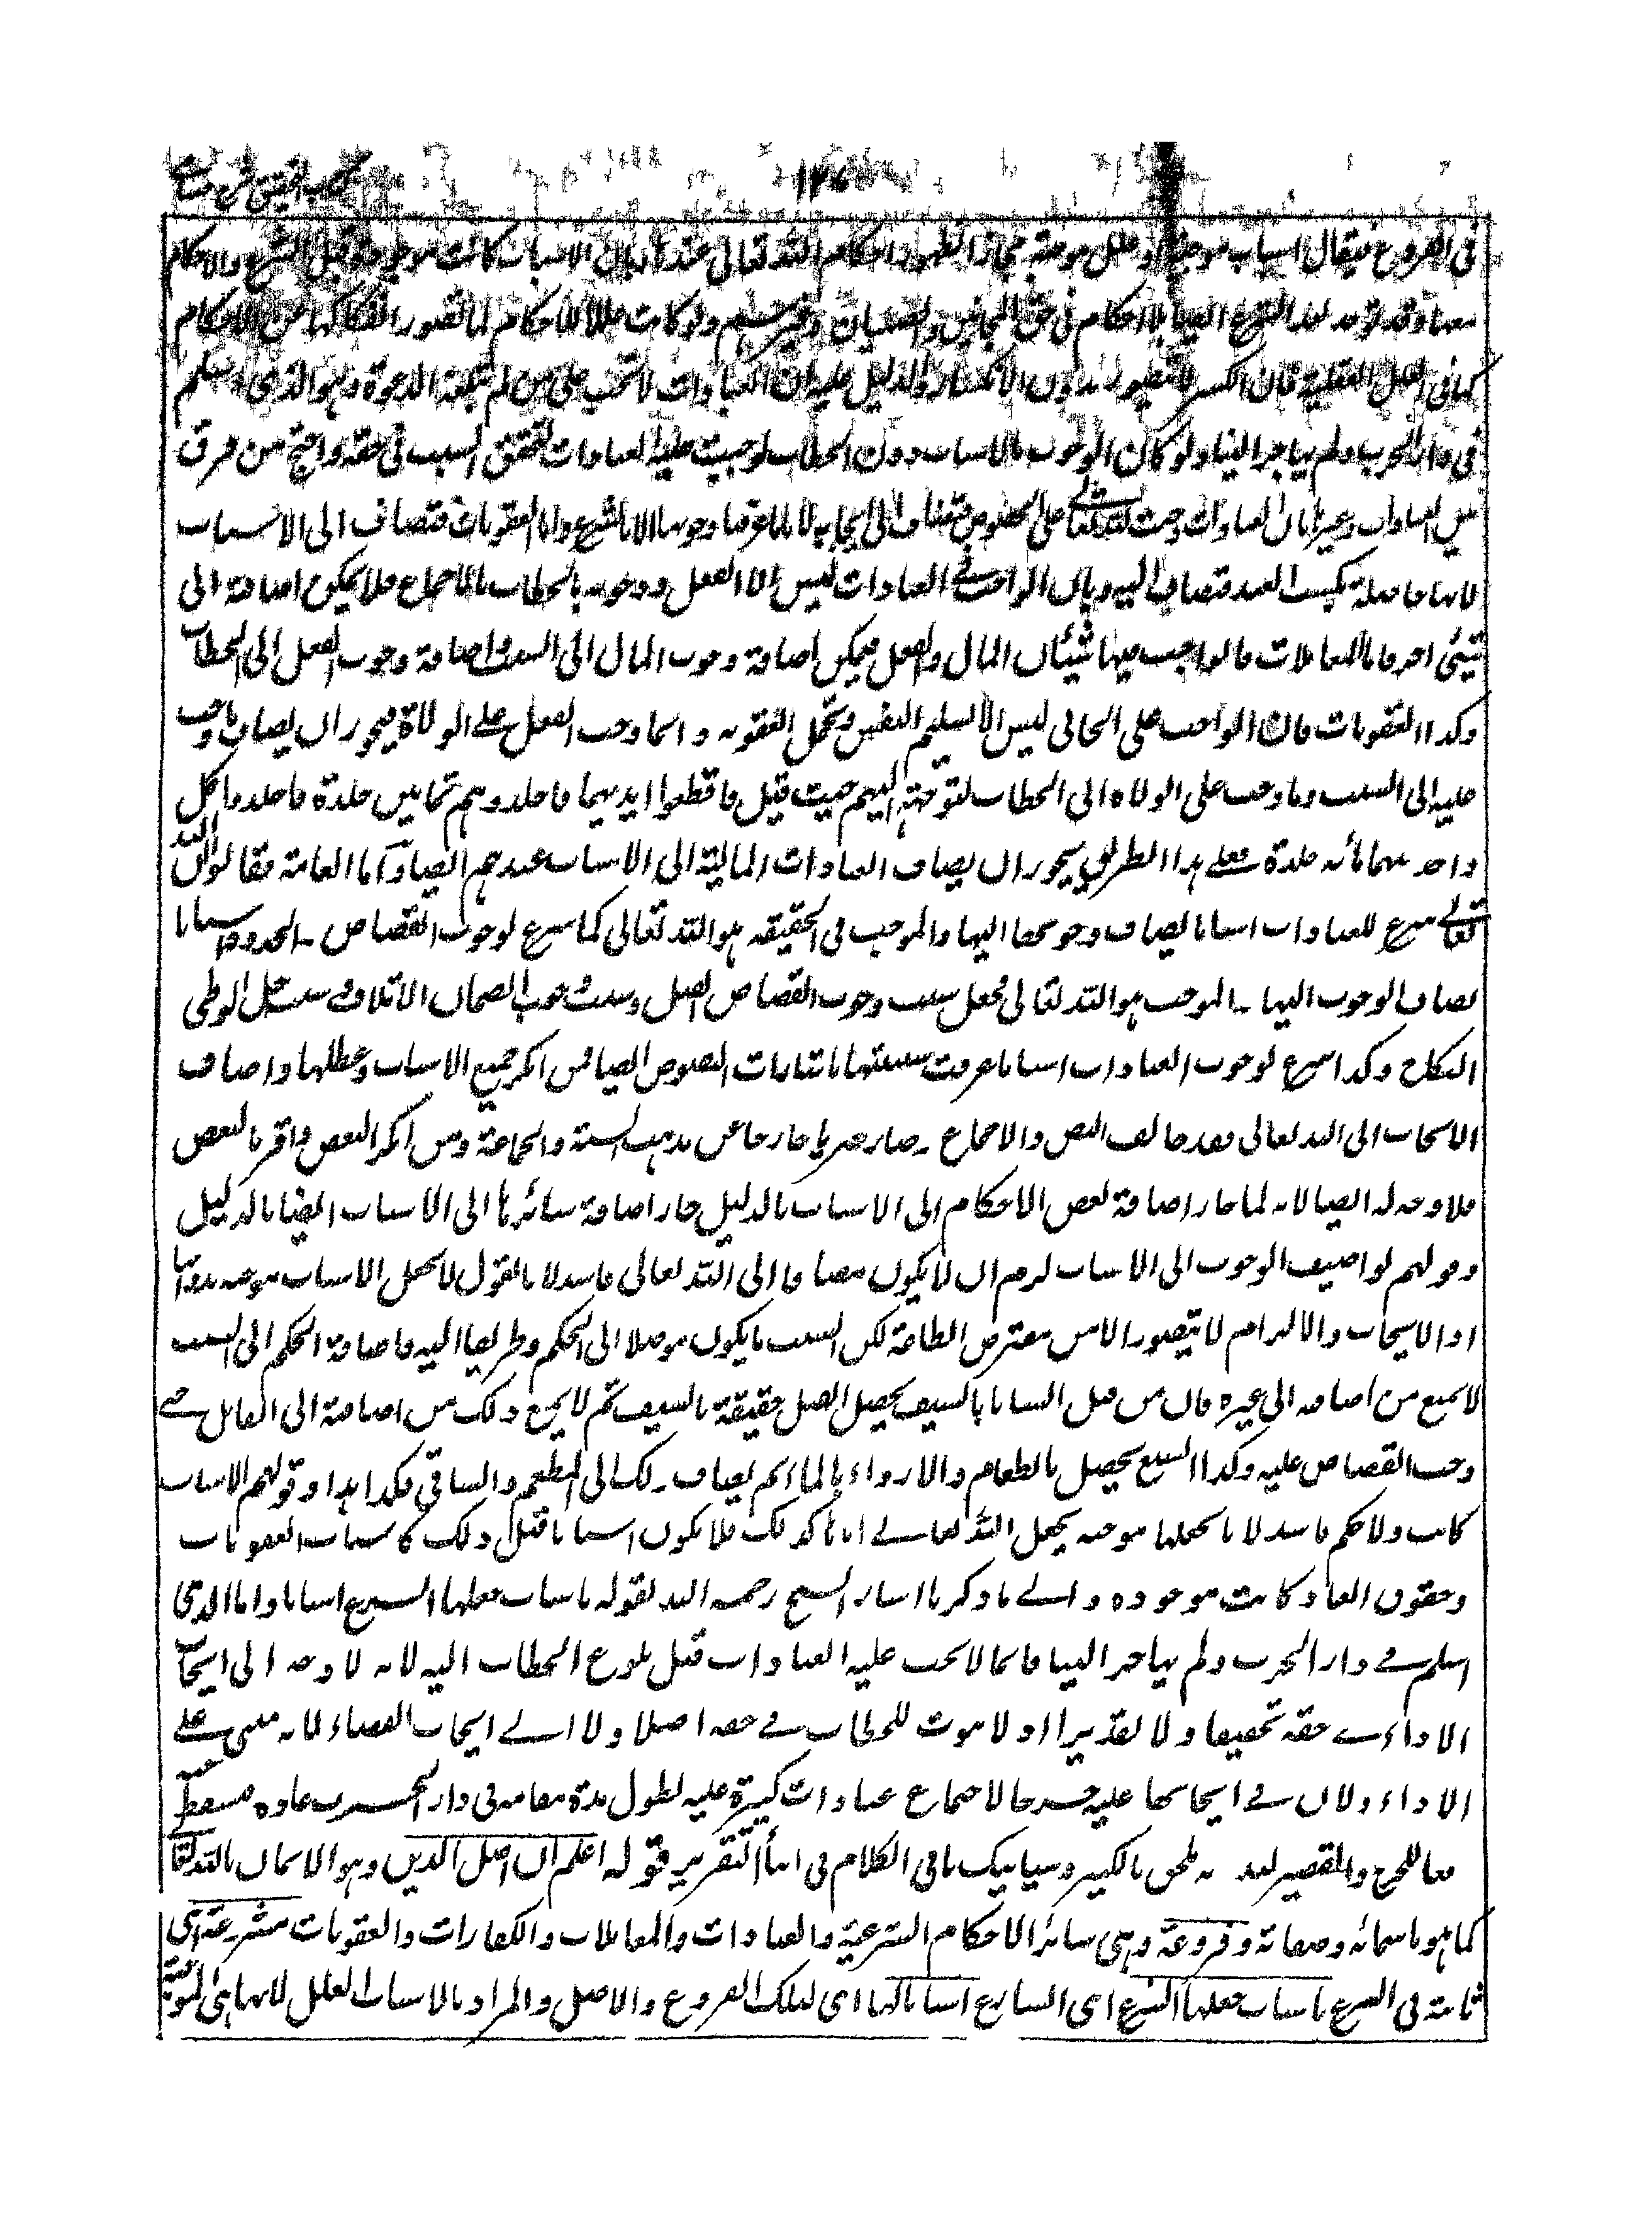 في الفروع فيقال اسباب موجبة او علل موجبة مجازا لظهور احكام الله تعالى عندها بان الاسباب كانت موجودة قبل الشرع والاحكام
معها وقد توجد بعد الشرع ايضا بلا احكام في حق المجانين والصبيان وغيرهم ولو كانت عللا للاحكام لما تصور انفكاكها عن الاحكام
كما في العلل العقلية فان الكسر لا يتصور بدون الانكسار والدليل عليه ان العبادات لا تجب على من لم تبلغه الدعوة وهو الذي اسلم
في دار الحرب ولم يهاجر الينا ولو كان الوجوب بالاسباب دون الخطاب لوجبت عليه العبادات لتحقق السبب في حقه واحتج من فرق
بين العبادات وغيرها بان العبادات وجبت لله تعالى على الخلوص فتضاف الى ايجابه لانا ما عرفنا وجوبها الا بالشرع واما العقوبات فتضاف الى الاسباب
لانها حاصلة بكسب العبد فتضاف اليه وبان الواجب في العبادات ليس الا الفعل ووجوبه بالخطاب بالاجماع فلا يمكن اضافته الى
شيئ اخر فاما المعاملات فالواجب فيها شيئان المال والفعل فيمكن اضافة وجوب المال الى السبب واضافة وجوب الفعل الى الخطاب
وكذا العقوبات فان الواجب على الجاني ليس الا تسليم النفس وتحمل العقوبة وانما وجب الفعل على الولاة فيجوز ان يضاف ما وجب
عليه الى السبب وما وجب على الولاة الى الخطاب لتوجهه اليهم حيث قيل فاقطعوا ايديهما فاجلدوهم ثمانين جلدة فاجلدوا كل
واحد منهما مائة جلدة فعلى هذا الطريق يجوز ان يضاف العبادات المالية الى الاسباب عندهم ايضا واما العامة فقالوا ان الله
تعالى شرع للعبادات اسبابا يضاف وجوبها اليها والموجب في الحقيقة هو الله تعالى كما شرع لوجوب القصاص والحدود اسبابا
يضاف الوجوب اليها والموجب هو الله تعالى فجعل سبب وجوب القصاص القتل وسبب وجوب الضمان الاتلاف وسبب حل الوطي
النكاح وكذا شرع لوجوب العبادات اسبابا عرفت سببيتها باشارات النصوص ايضا فمن انكر جميع الاسباب وعطلها واضاف
الايجاب الى الله تعالى فقد خالف النص والاجماع وصار جبريا خارجا عن مذهب السنة والجماعة ومن انكر البعض واقر بالبعض
فلا وجه له ايضا لانه لما جاز اضافة بعض الاحكام الى الاسباب بالدليل جاز اضافة سائرها الى الاسباب ايضا بالدليل
وقولهم لو اضيف الوجوب الى الاسباب لزم ان لا يكون مضافا الى الله تعالى فاسد لانا نقول لا نجعل الاسباب موجبة بذواتها
اذ الايجاب والالزام لا يتصور الا من مفترض الطاعة لكن السبب ما يكون موصلا الى الحكم وطريقا اليه فاضافة الحكم الى السبب
لا يمنع من اضافته الى غيره فان من قتل انسانا بالسيف يحصل القتل حقيقة بالسيف ثم لا يمنع ذلك من اضافته الى القاتل حتى
وجب القصاص عليه وكذا الشبع يحصل بالطعام والارواء بالماء ثم يضاف ذلك الى المطعم والساقي فكذا هذا وقولهم الاسباب
كانت ولا حكم فاسد لانا نجعلها موجبة بجعل الله تعالى اياها كذلك فلا تكون اسبابا قبل ذلك كاسباب العقوبات
وحقوق العباد كانت موجودة والى ما ذكرنا اشار الشيخ رحمه الله بقوله باسباب جعلها الشرع اسبابا واما الذي
اسلم في دار الحرب ولم يهاجر الينا فانما لا تجب عليه العبادات قبل بلوغ الخطاب اليه لانه لا وجه الى ايجاب
الاداء في حقه تحقيقا ولا تقديرا اذ لا ثبوت للخطاب في حقه اصلا ولا الى ايجاب القضاء لانه مبنى على
الاداء ولان في ايجابها عليه حرجا لاجتماع عبادات كثيرة عليه لطول مدة مقامه في دار الحرب عادة فيسقط عنه
دفعا للحرج والقصير لعدمه ملحق بالكثير وسيأتيك باقي الكلام في اثناء التقرير قوله اعلم ان اصل الدين وهو الايمان بالله تعالى
كما هو باسمائه وصفاته وفروعه وهي سائر الاحكام الشرعية والعبادات والمعاملات والكفارات والعقوبات مشروعة اي
ثابتة في الشرع باسباب جعلها الشرع اي الشارع اسبابا لها اي لتلك الفروع والاصل والمراد بالاسباب العلل لانها هي الموجبة